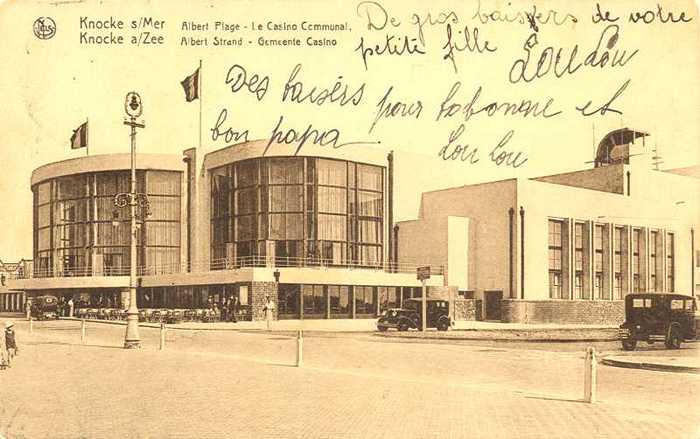 Knocke s/Mer Albert Plage - Le Casino Communal,
Knocke a/Zee Albert Strand - Gemeente Casino
De gros baisers de votre
petite fille Loulou
Des baisérs pour bobonne et
bon papa
Lou Lou